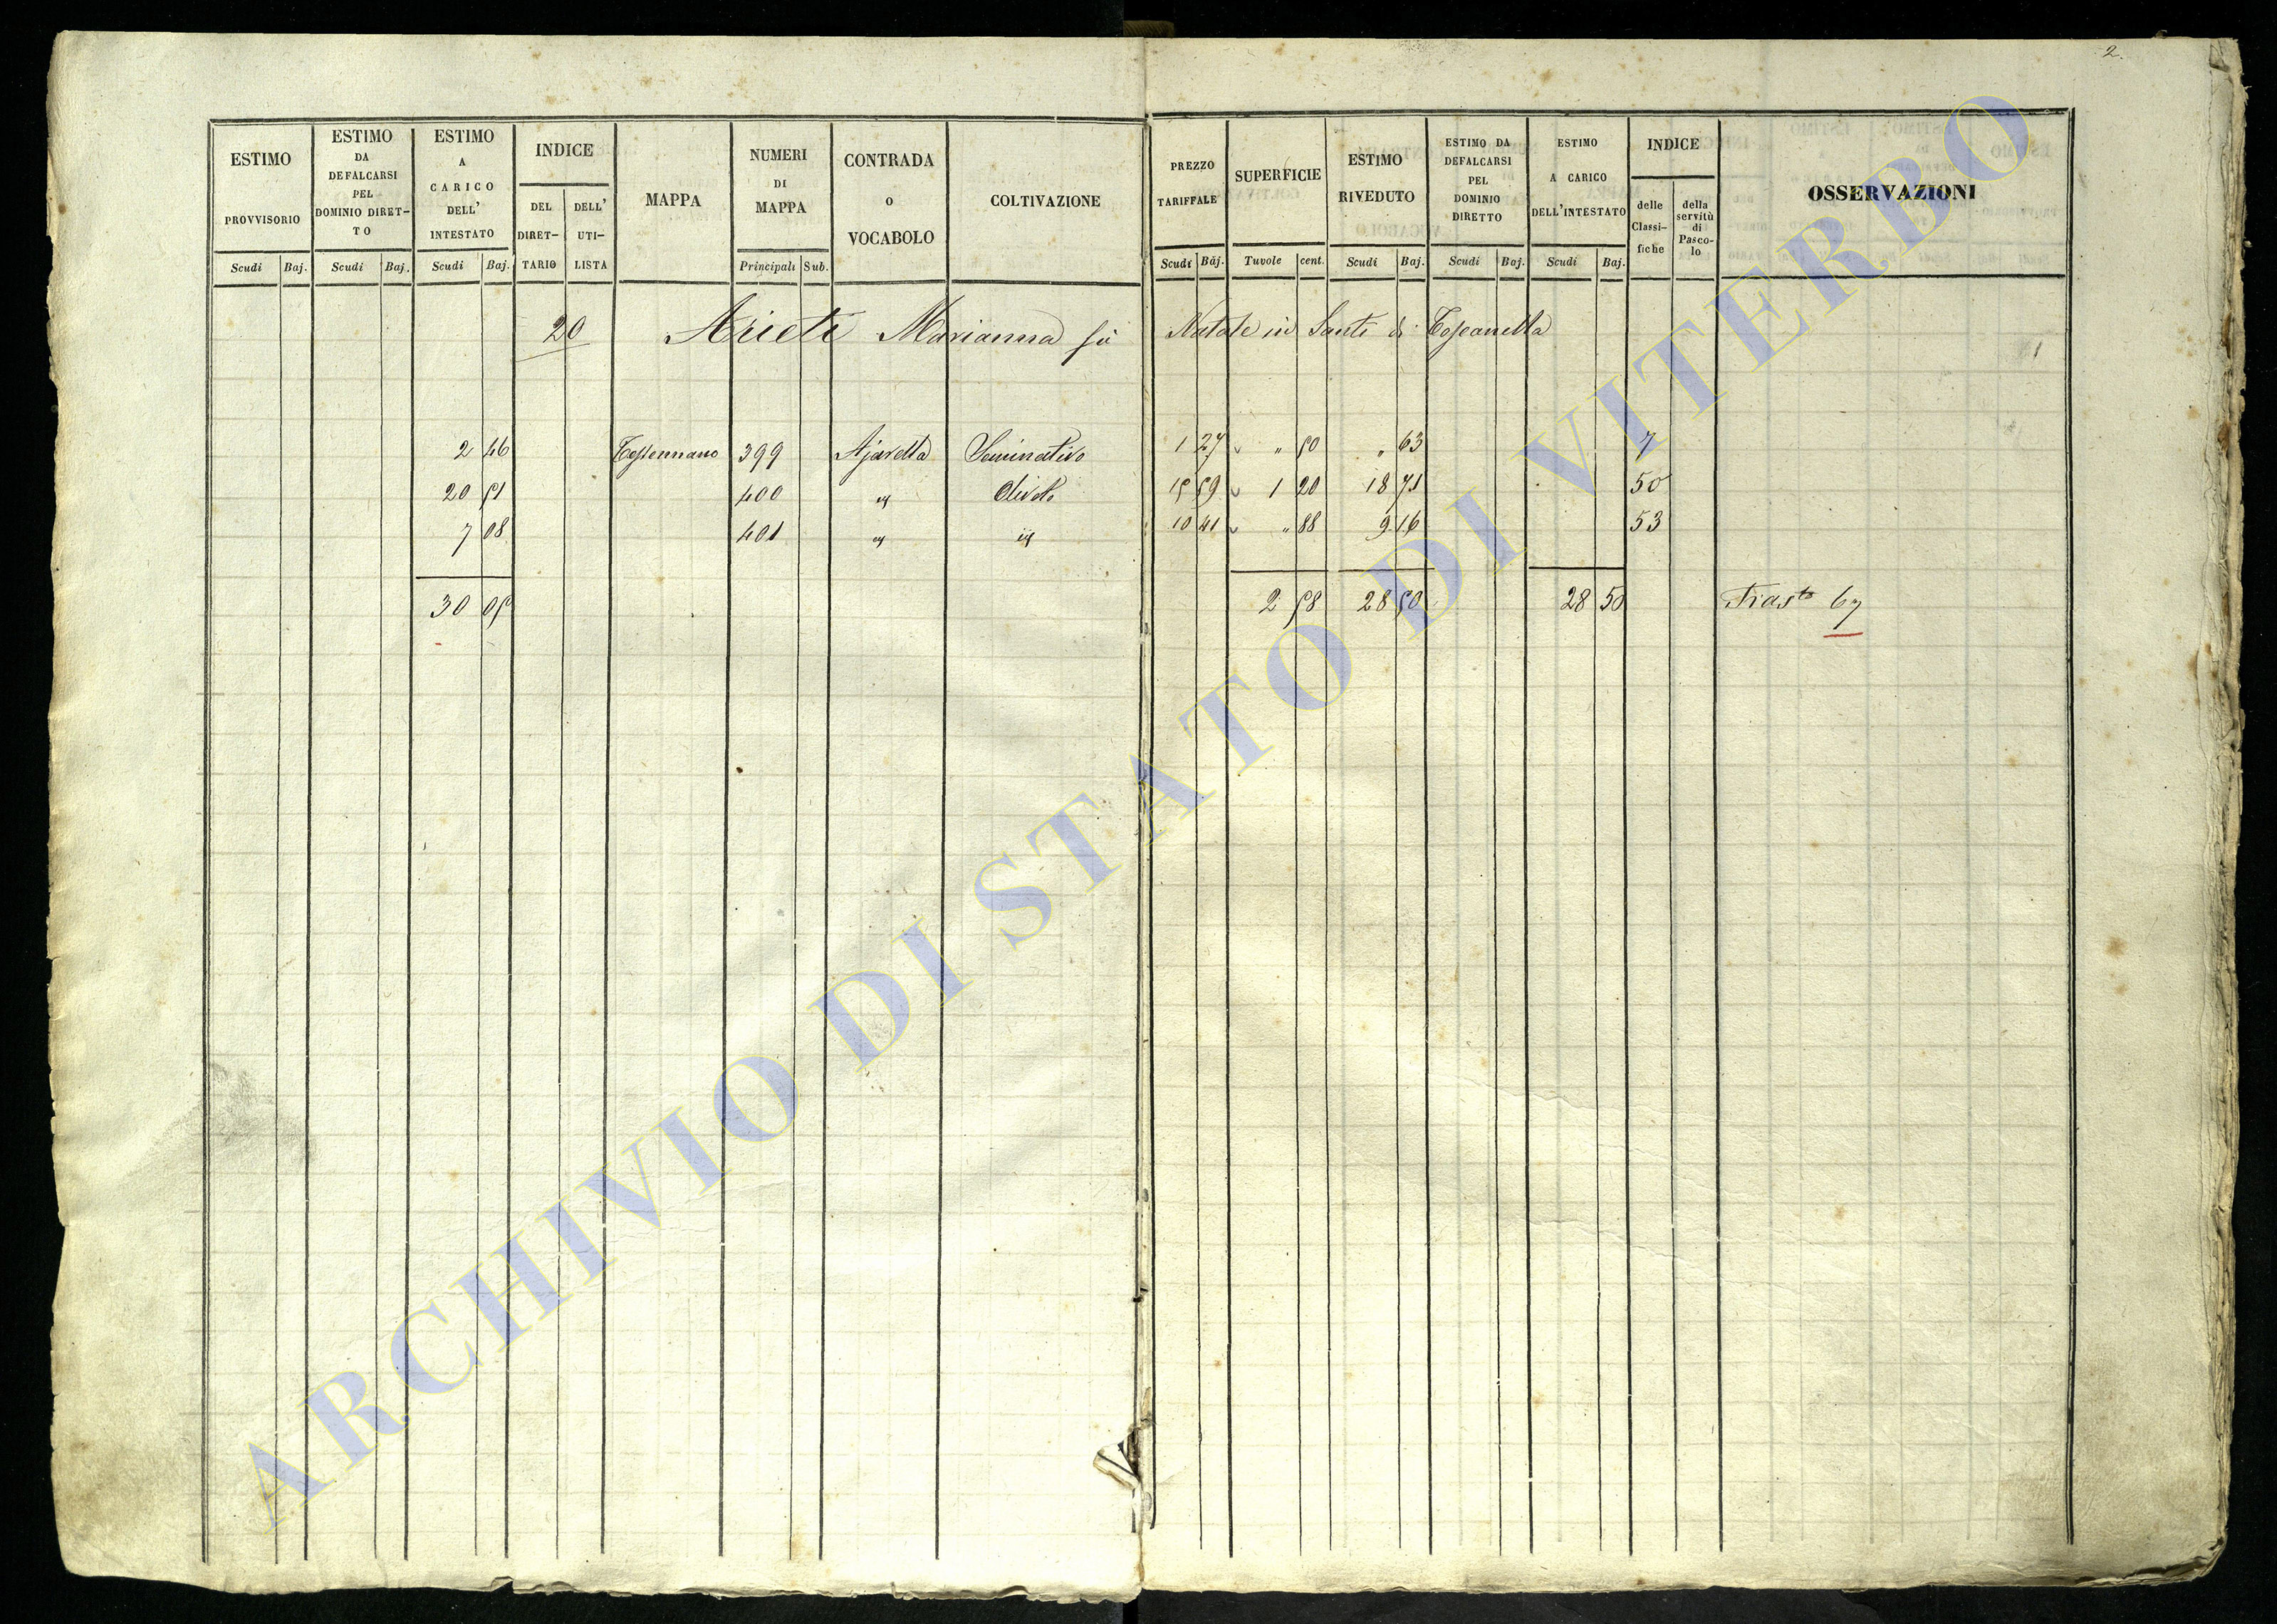 2.
ESTIMO PROVVISORIO
ESTIMO DA DEFALCARSI PEL DOMINIO DIRET- TO
ESTIMO A CARICO DELL' INTESTATO
INDICE
DEL DIRET- TARIO
DELL' UTI- LISTA
MAPPA
NUMERI DI MAPPA
CONTRADA O VOCABOLO
COLTIVAZIONE
PREZZO TARIFFALE
SUPERFICIE
ESTIMO RIVEDUTO
ESTIMO DA DEFALCARSI PEL DOMINIO DIRETTO
ESTIMO A CARICO DELL'INTESTATO
INDICE
delle Classi- fiche
della servitù di Pasco- lo
OSSERVAZIONI
Scudi Baj. Scudi Baj. Scudi Baj. Principali Sub. Scudi Baj. Tavole cent. Scudi Baj. Scudi Baj. Scudi Baj.
20 Arieti Marianna fù Natale in Santi di Toscanella
2 46 399 Ajaretta Seminativo 1 27 " 50 " 63 7
20 51 400 id Olivato 15 59 1 20 18 71 50
7 08 401 id id 10 41 " 88 9 16 53
30 05 2 58 28 50 28 50 Trasto 67
ARCHIVIO DI STATO DI VITERBO